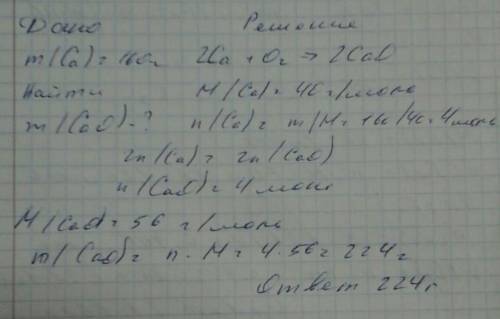 Дано Решение
m(Ca) = 160г 2Ca + O₂ → 2CaO
Найти M(Ca) = 40 г/моль
m(CaO) - ? n(Ca) = m/M = 160/40 = 4 моль
2n(Ca) = 2n(CaO)
n(CaO) = 4 моль
M(CaO) = 56 г/моль
m(CaO) = n · M = 4 · 56 = 224 г
Ответ 224г